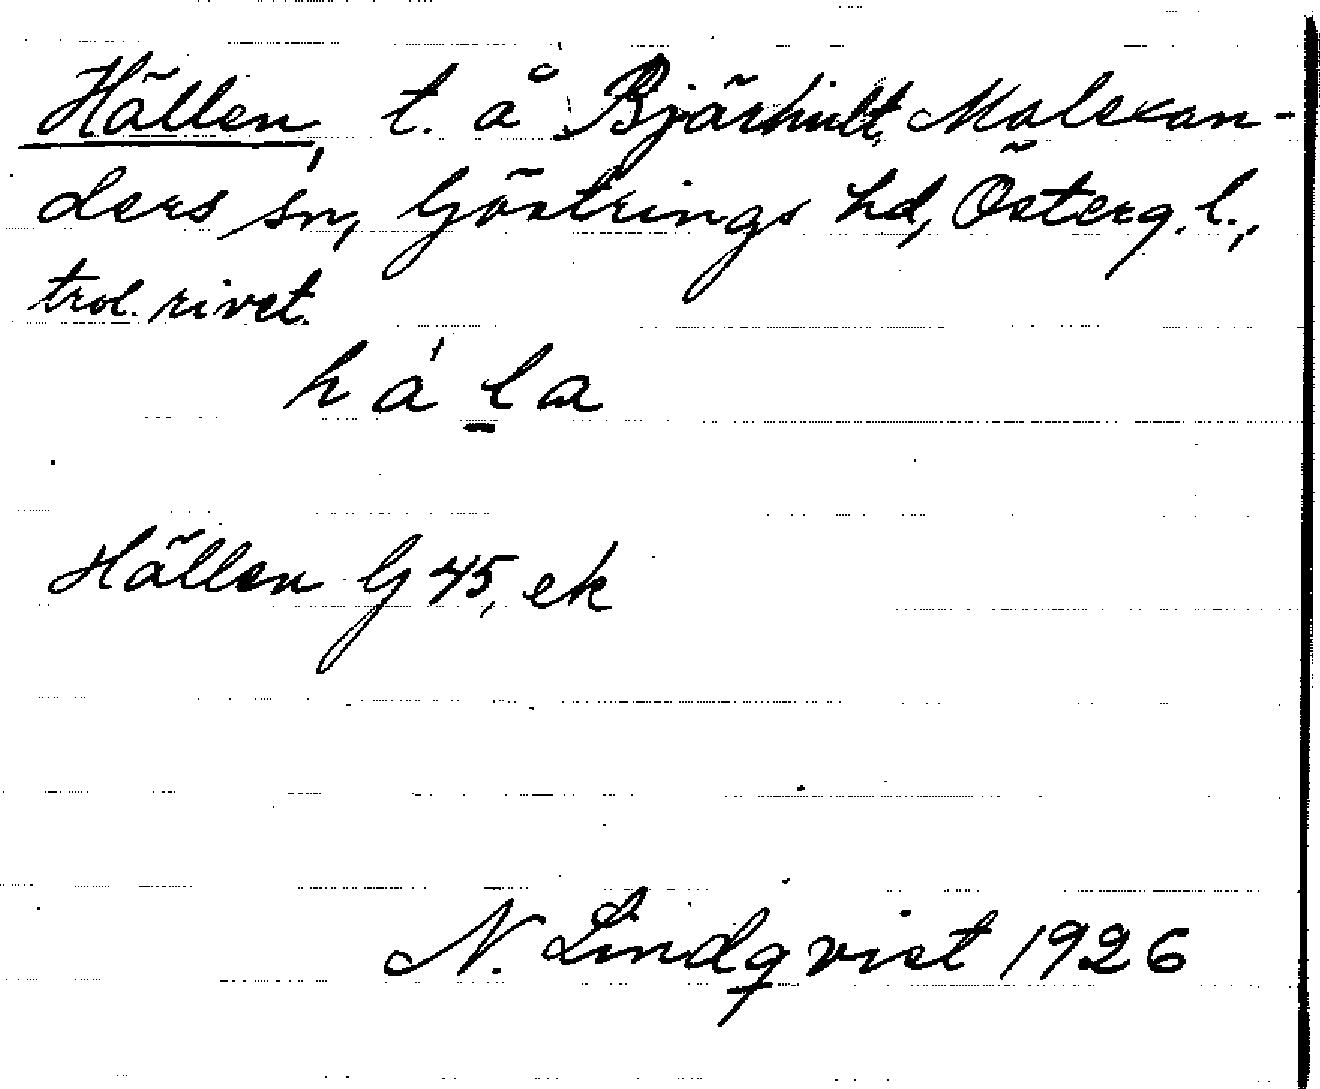 Hällen, t. å Bjärhult, Malexan-
ders sn, Göstrings hd, Österg. l.,
trol. rivet.
há l̲a
Hällen G 45, ek
N. Lindqvist 1926